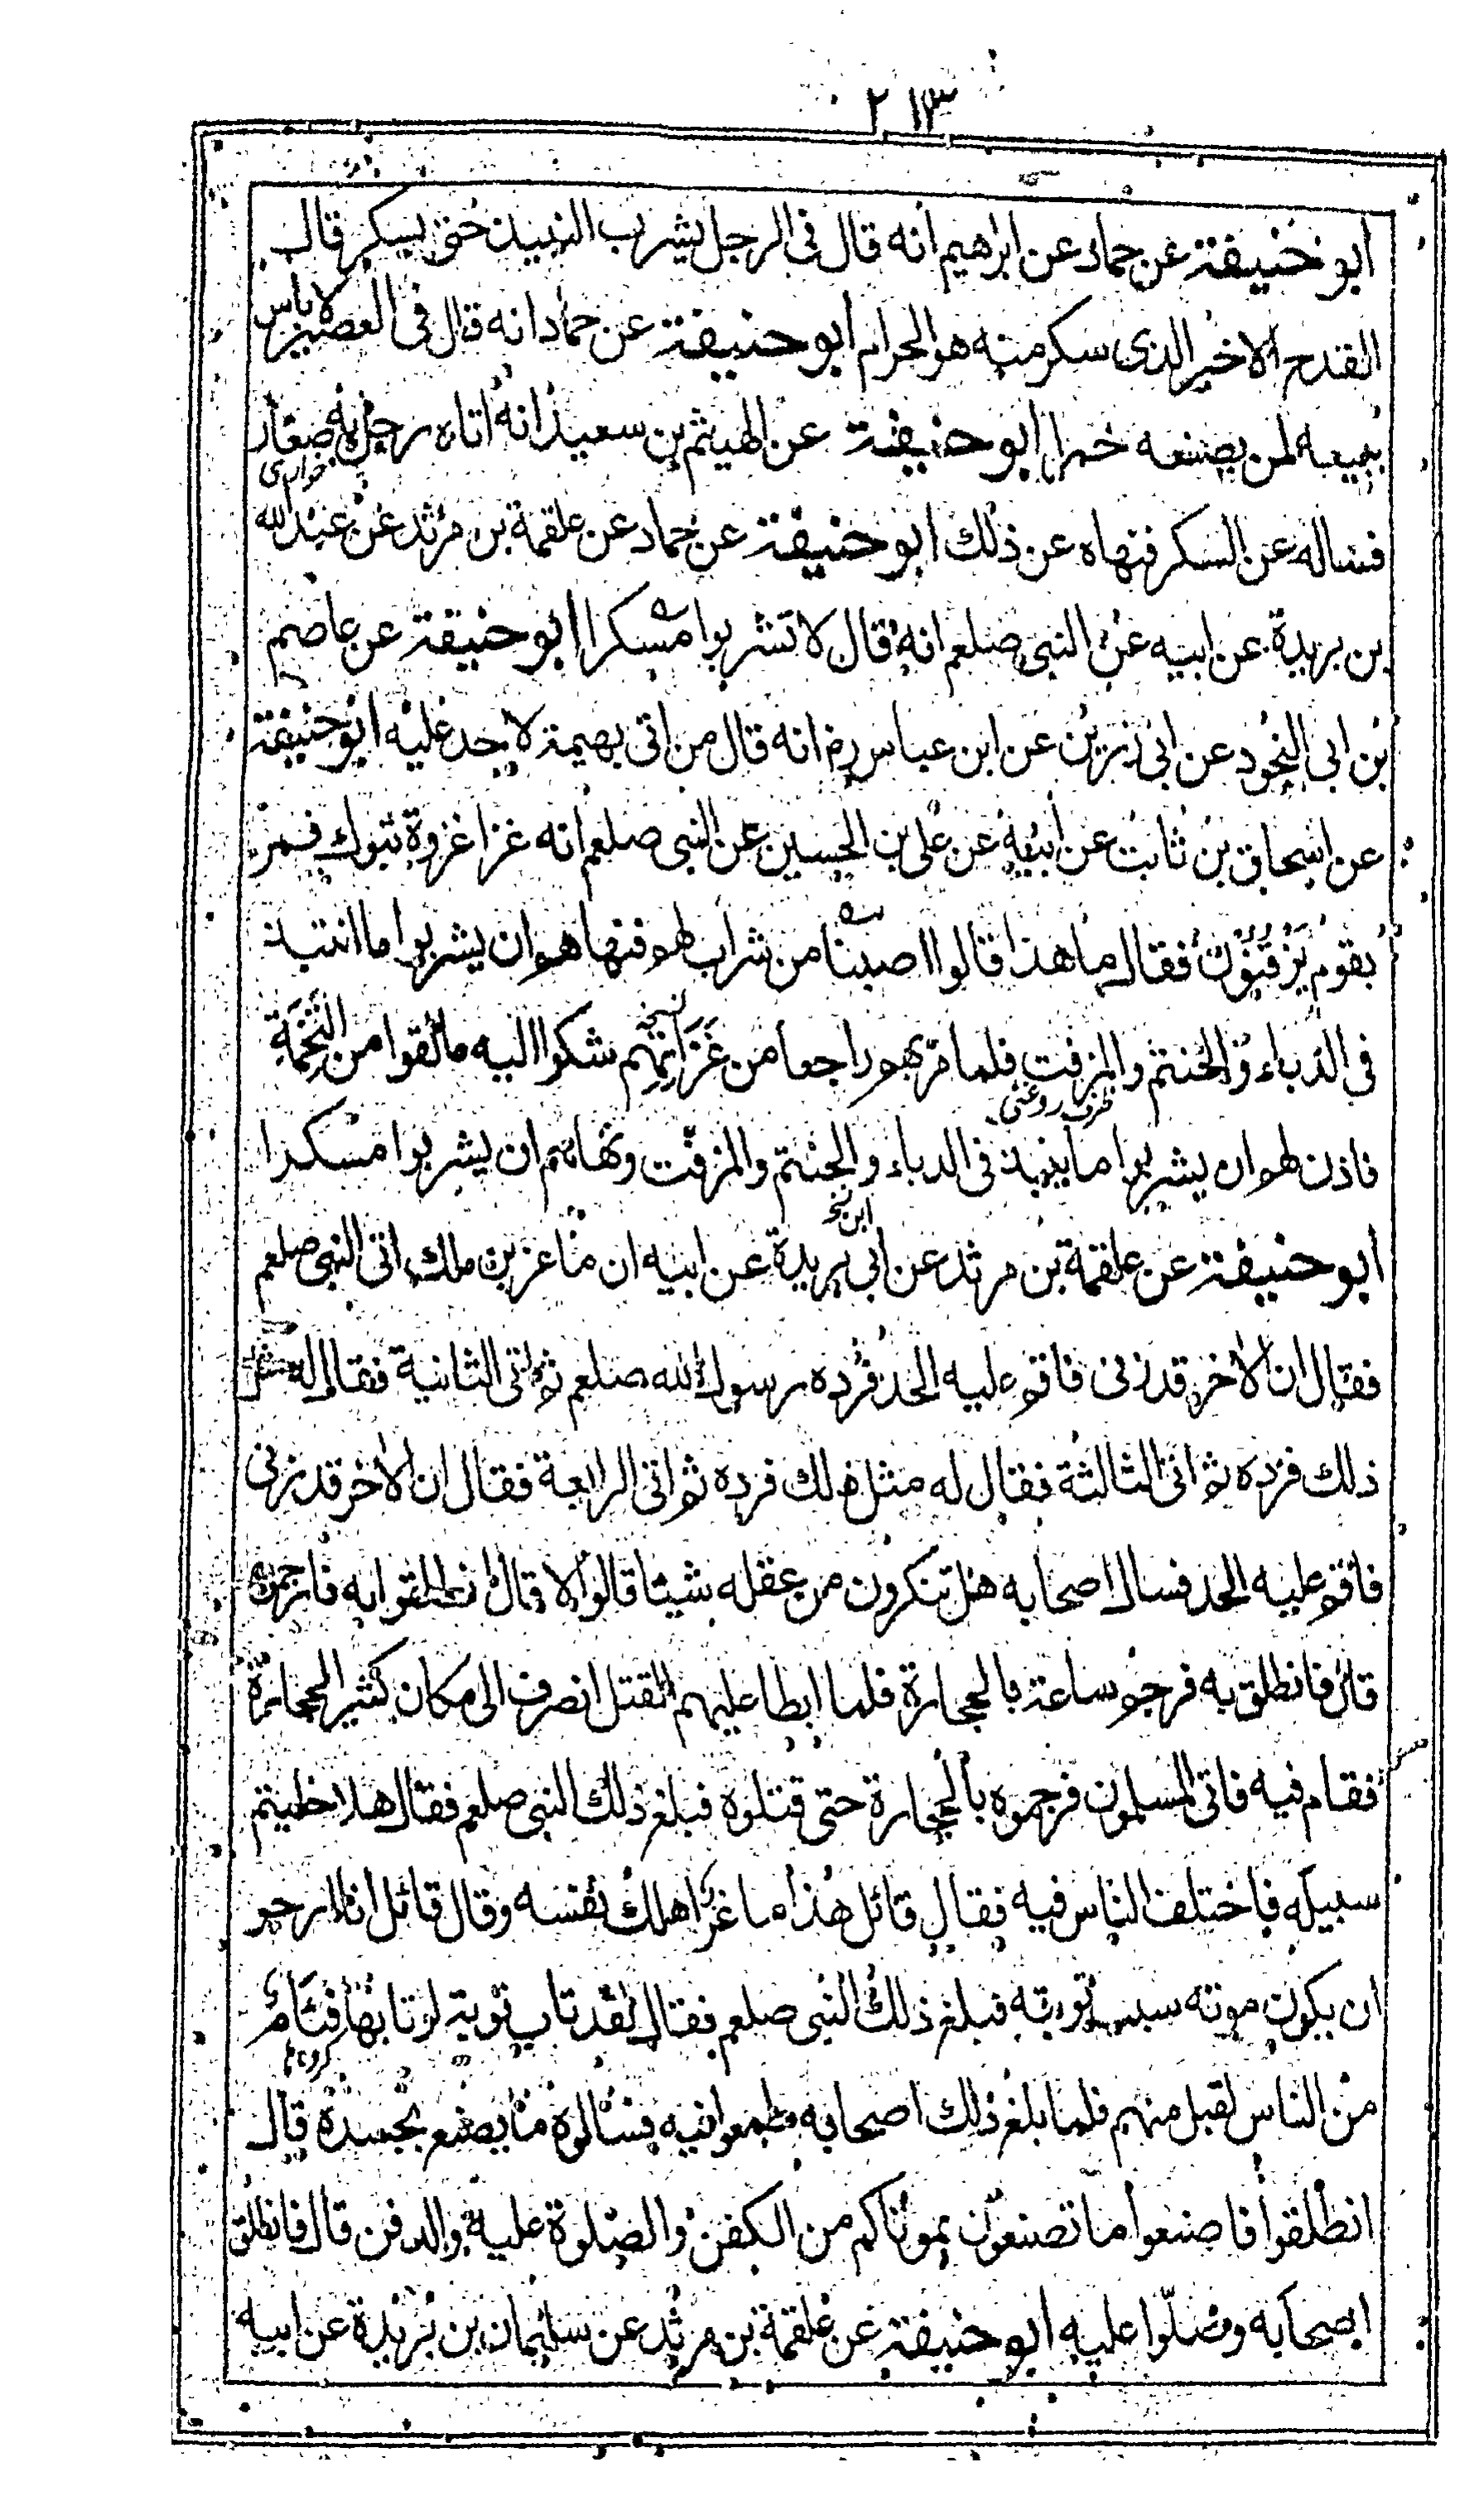 ٢١٣
ابو حنيفة عن حماد عن ابرهيم انه قال فى الرجل يشرب النبيذ حتى يسكر قال
القدح الاخير الذى سكر منه هو الحرام ابو حنيفة عن حماد انه قال فى العصير لا باس
ببيعه لمن يصنعه خمرا ابو حنيفة عن الهيثم بن سعيد انه اتاه رجل به صغار
فساله عن السكر فنهاه عن ذلك ابو حنيفة عن حماد عن علقمة بن مرثد عن عبد الله
بن بريدة عن ابيه عن النبى صلعم انه قال لا تشربوا مسكرا ابو حنيفة عن عاصم
بن ابى النجود عن ابى رزين عن ابن عباس رض انه قال من اتى بهيمة لا حد عليه ابو حنيفة
عن اسحاق بن ثابت عن ابيه عن على بن الحسين عن النبى صلعم انه غزا غزوة تبوك فمر
بقوم يزفتون فقال ما هذا قالوا اصبنا من شراب لهم فنهاهم ان يشربوا ما انتبذ
فى الدباء والحنتم والمزفت فلما مر بهم راجعا من غزاتهم شكوا اليه ما لقوا من التخمة
ظرف روغنى
نسخه
فاذن لهم ان يشربوا ما ينبذ فى الدباء والحنتم والمزفت ونهاهم ان يشربوا مسكرا
ابو حنيفة عن علقمة بن مرثد عن ابى بريدة عن ابيه ان ماعز بن ملك اتى النبى صلعم
ابن نخ
فقال ان الاخر قد زنى فاقم عليه الحد فرده رسول الله صلعم ثم اتى الثانية فقال له مثل
ذلك فرده ثم اتى الثالثة فقال له مثل ذلك فرده ثم اتى الرابعة فقال ان الاخر قد زنى
فاقم عليه الحد فسال اصحابه هل تنكرون من عقله شيئا قالوا لا قال انطلقوا به فارجموه
قال فانطلق به فرجم ساعة بالحجارة فلما ابطا عليهم القتل انصرف الى مكان كثير الحجارة
فقام فيه فاتى المسلمون فرجموه بالحجارة حتى قتلوه فبلغ ذلك النبى صلعم فقال هلا خليتم
سبيله فاختلف الناس فيه فقال قائل هذا ماعز اهلك نفسه وقال قائل انا ارجو
ان يكون موته سبب توبته فبلغ ذلك النبى صلعم فقال لقد تاب توبة لو تابها فئام
من الناس لقبل منهم فلما بلغ ذلك اصحابه طمعوا فيه فسالوه ما يصنع بجسده قال
انطلقوا فاصنعوا ما تصنعون بموتاكم من الكفن والصلوة عليه والدفن قال فانطلق
اصحابه وصلوا عليه ابو حنيفة عن علقمة بن مرثد عن سليمان بن بريدة عن ابيه